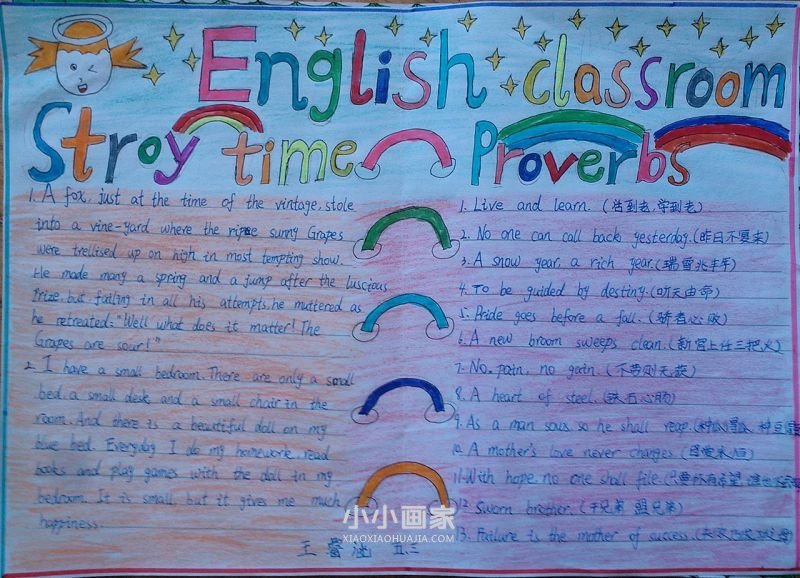 English classroom
Stroy time
1. A fox, just at the time of the vintage, stole
into a vine-yard where the ripe sunny Grapes
were trellised up on high in most tempting show.
He made many a spring and a jump after the luscious
Prize. but failing in all his attempts, he muttered as
he retreated. "Well what does it matter! The
Grapes are sour!"
2. I have a small bedroom. There are only a small
bed. a small desk and a small chair in the
room. And there is a beautiful doll on my
blue bed. Everyday I do my homework, read
books and play games with the doll in my
bedroom. It is small, but it gives me much
happiness.
Proverbs
1. Live and learn. (活到老,学到老)
2. No one can call back yesterday. (昨日不复来)
3. A snow year, a rich year. (瑞雪兆丰年)
4. To be guided by destiny. (听天由命)
5. Pride goes before a fall. (骄者必败)
6. A new broom sweeps clean. (新官上任三把火)
7. No. pain, no gain. (不劳则无获)
8. A heart of steel. (铁石心肠)
9. As a man sous, so he shall reap. (种瓜得瓜 种豆得
10. A mother's love never changes.
11. With hope, no one shall file.
12. Sworn brother. (干兄弟 盟兄弟)
13. Failure is the mother of success. (失败乃成功之母)
五.三
小小画家
XIAOXIAOHUAJIA.COM